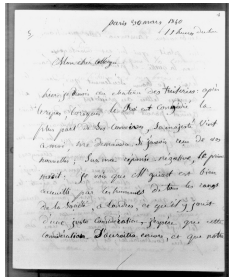 paris 30 mars 1840
11 heures du soir
Mon cher collègue
hier, je dinais au chateau des tuileries: après
le repas, lorsque le Roi eut congédié la
plus part de ses convives, sa majesté vint
à moi me demander si j'avais reçu de vos
nouvelles; sur ma réponse négative, le Roi
me dit: je vois que Mr Guizot est bien
accueilli par les hommes de tous les rangs
de la société à Londres, et qu'il y jouit
d'une juste considération; j'espère que cette
considération s'accroitra encore, ce que notre